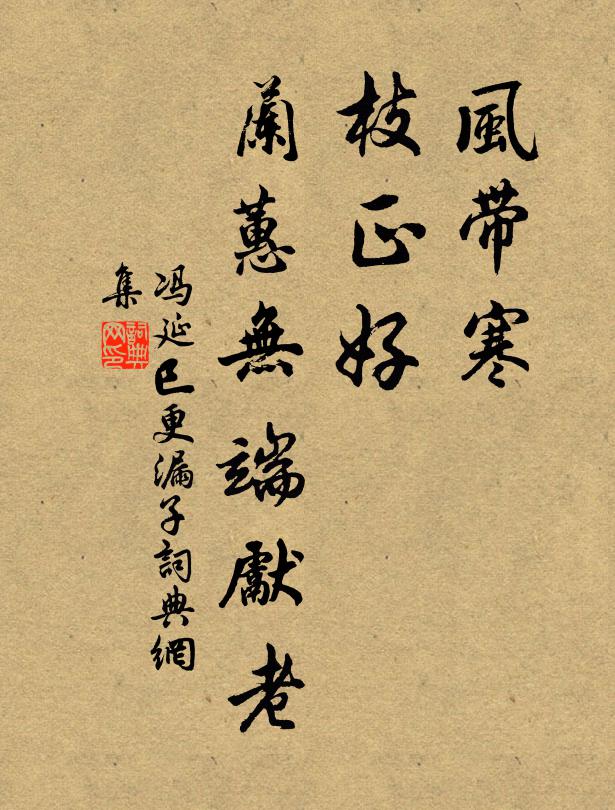 風帶寒
枝正好
蘭蕙無端獻老
冯延巳更漏子詞典網
集
詞典
网印